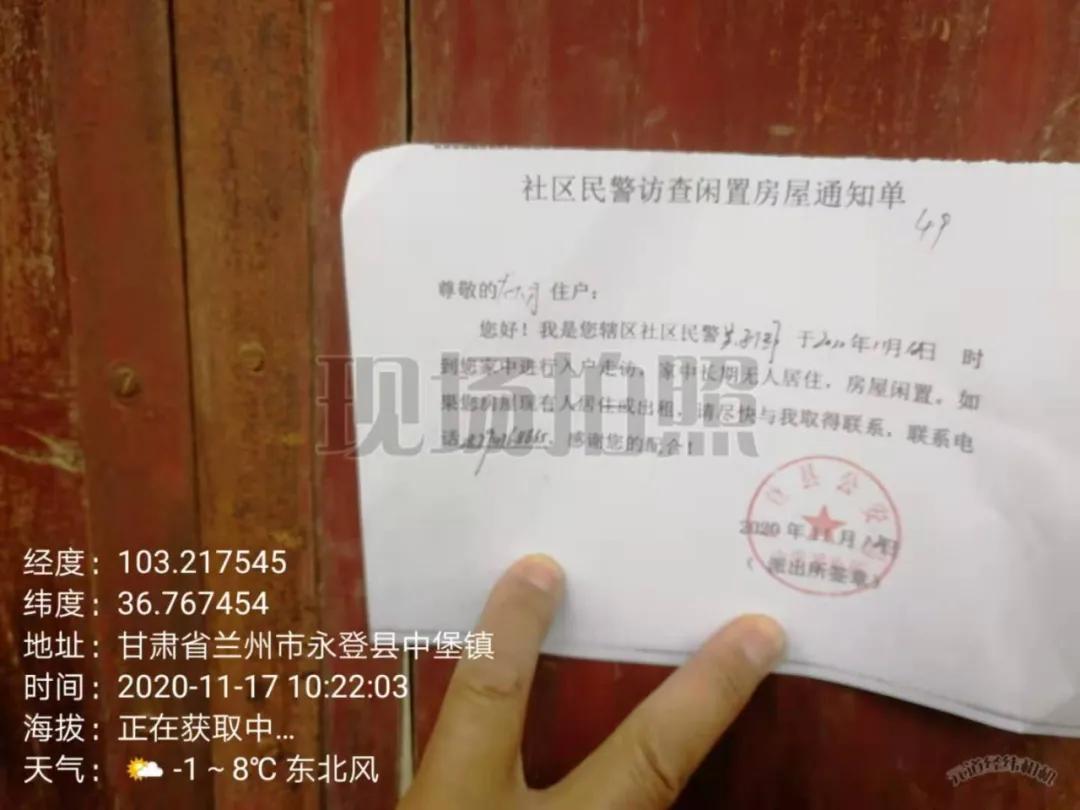 社区民警访查闲置房屋通知单
49
尊敬的 住户:
您好!我是您辖区社区民警 于2020年11月 日 时
到您家中进行入户走访,家中长期无人居住,房屋闲置。如
果您房屋现有人居住或出租,请尽快与我取得联系,联系电
话 ,感谢您的配合!
县公安
2020年11月 日
(派出所签章)
现场拍照
经度:103.217545
纬度:36.767454
地址:甘肃省兰州市永登县中堡镇
时间:2020-11-17 10:22:03
海拔:正在获取中...
天气: -1 ~ 8℃ 东北风
元道经纬相机